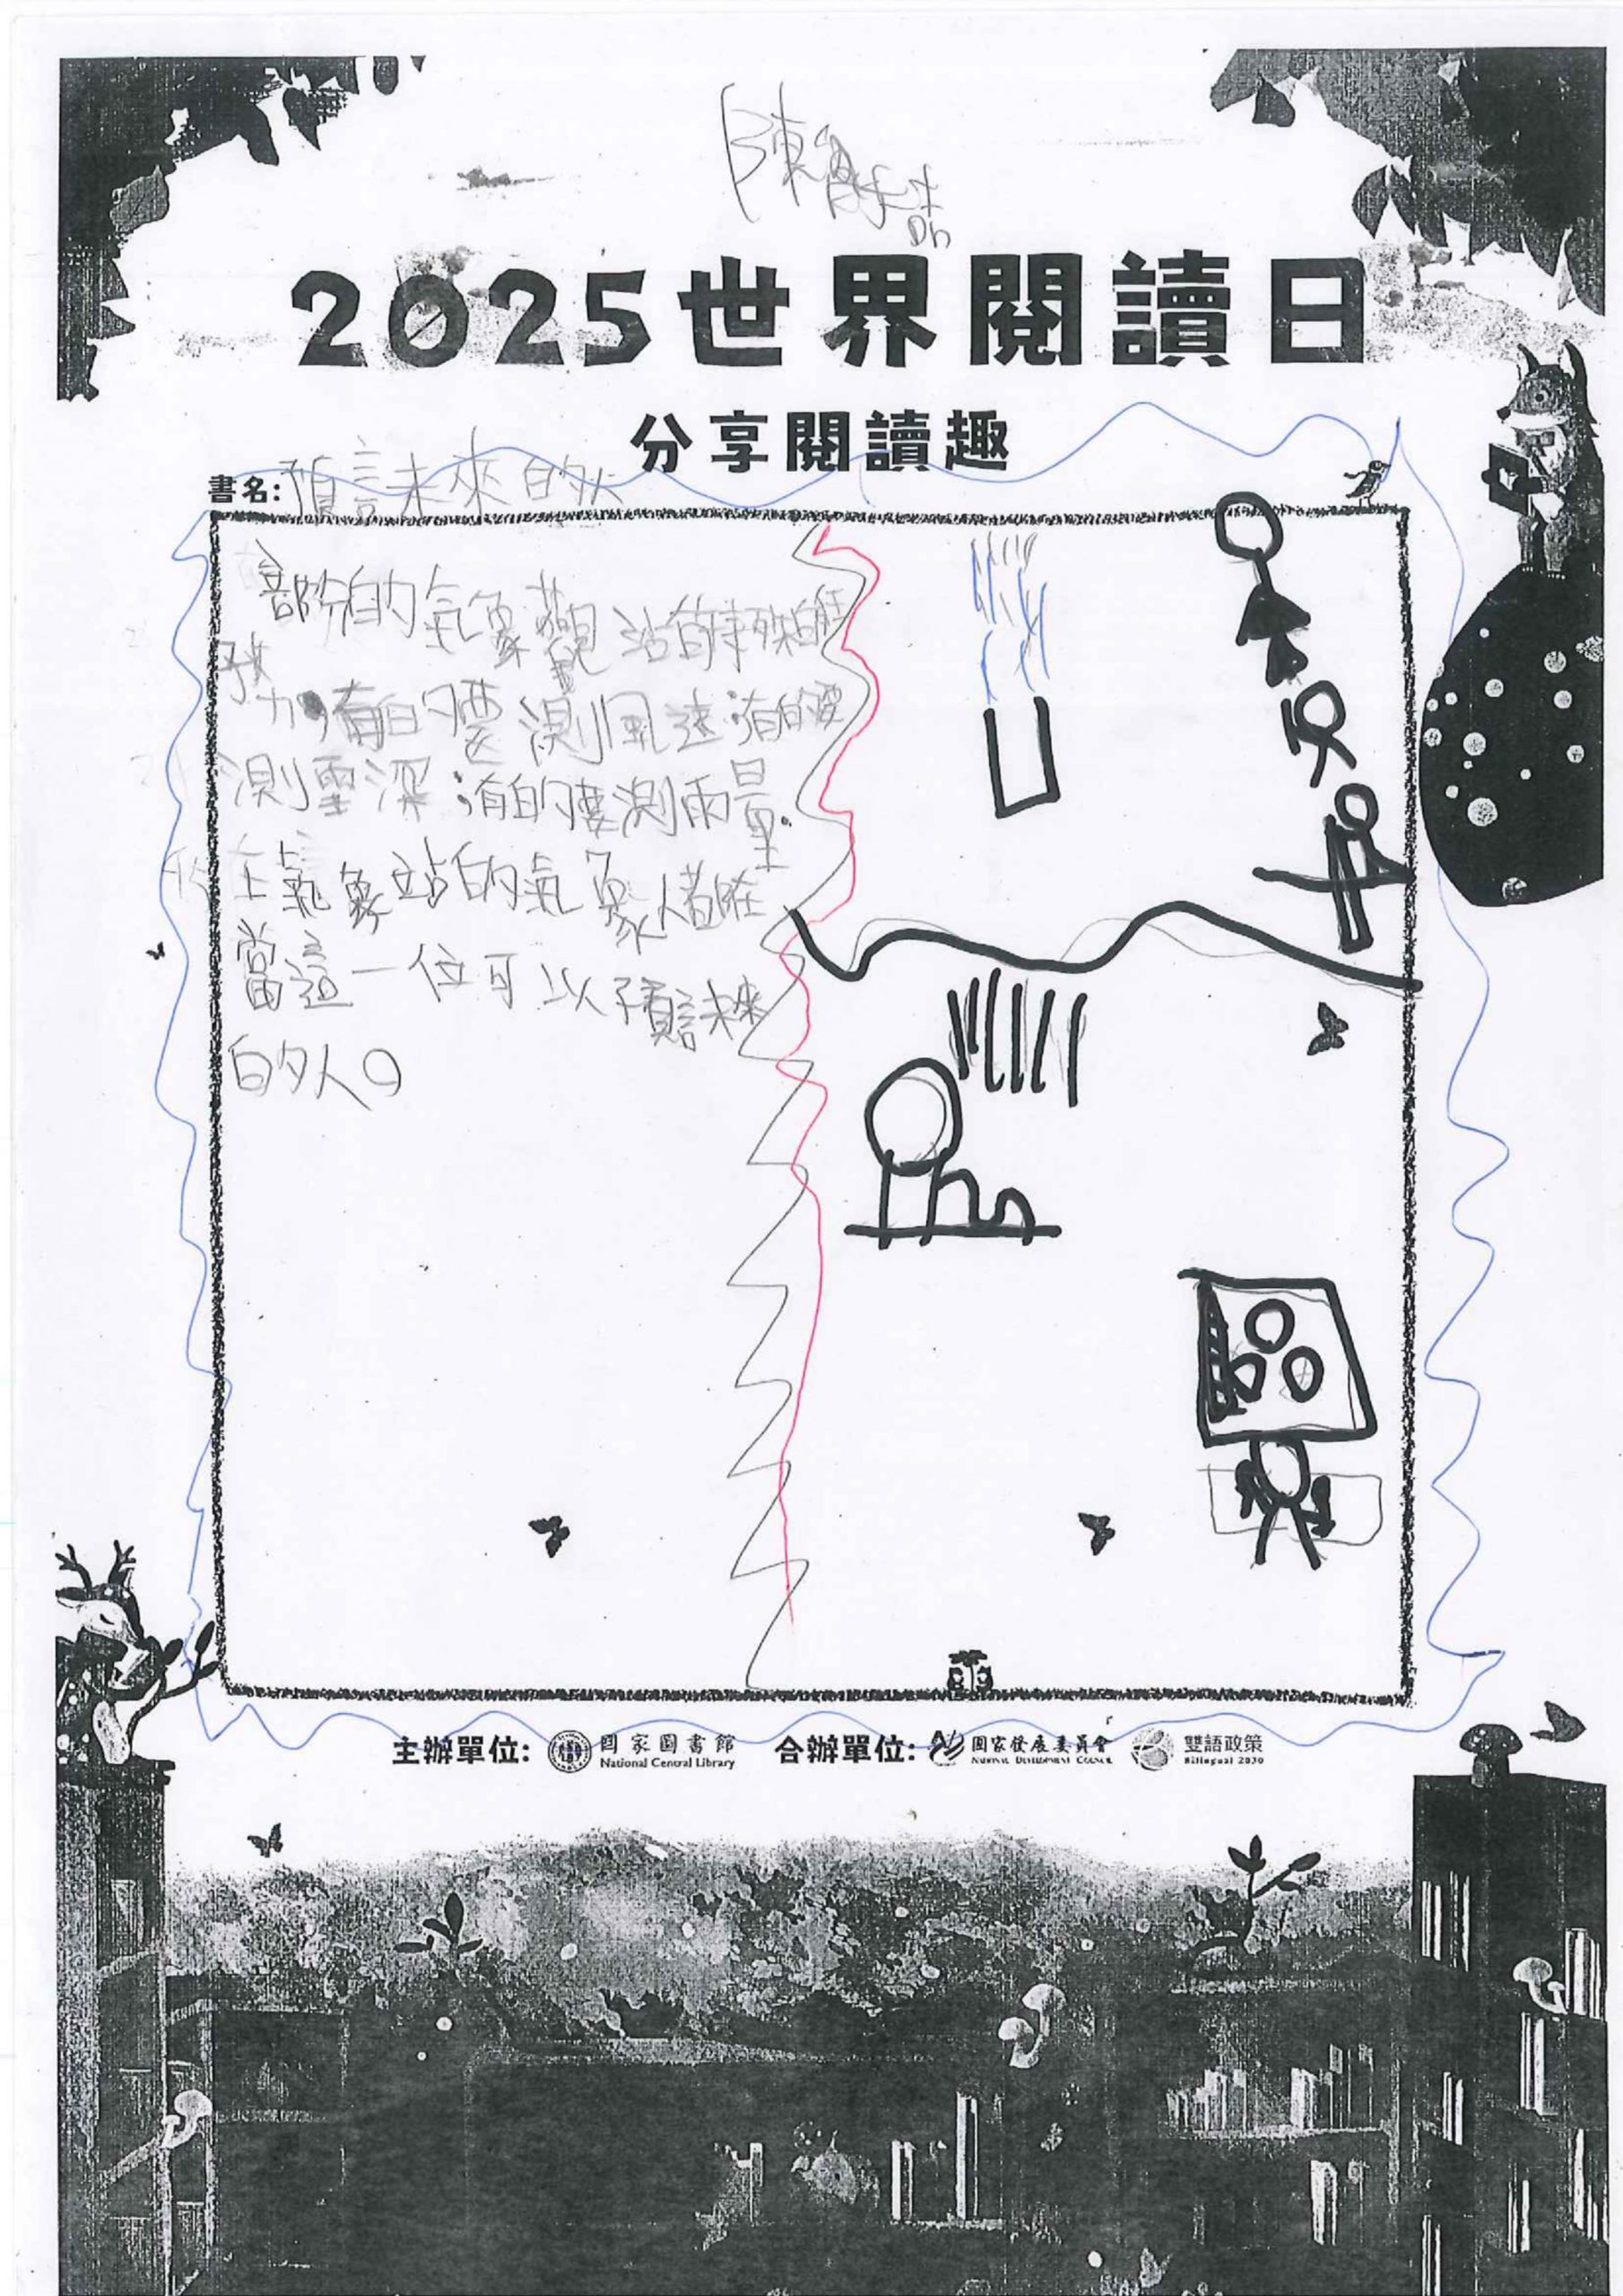 陳
2025世界閱讀日
分享閱讀趣
書名: 預言未來的人
部份的氣象觀站有特殊的任
務力,有的要測風速,有的要
測雪深,有的要測雨量.
在氣象站的氣象人都在
當這一位可以預言未來
的人。
主辦單位: 國家圖書館 National Central Library 合辦單位: 國家發展委員會 NATIONAL DEVELOPMENT COUNCIL 雙語政策 Bilingual 2030